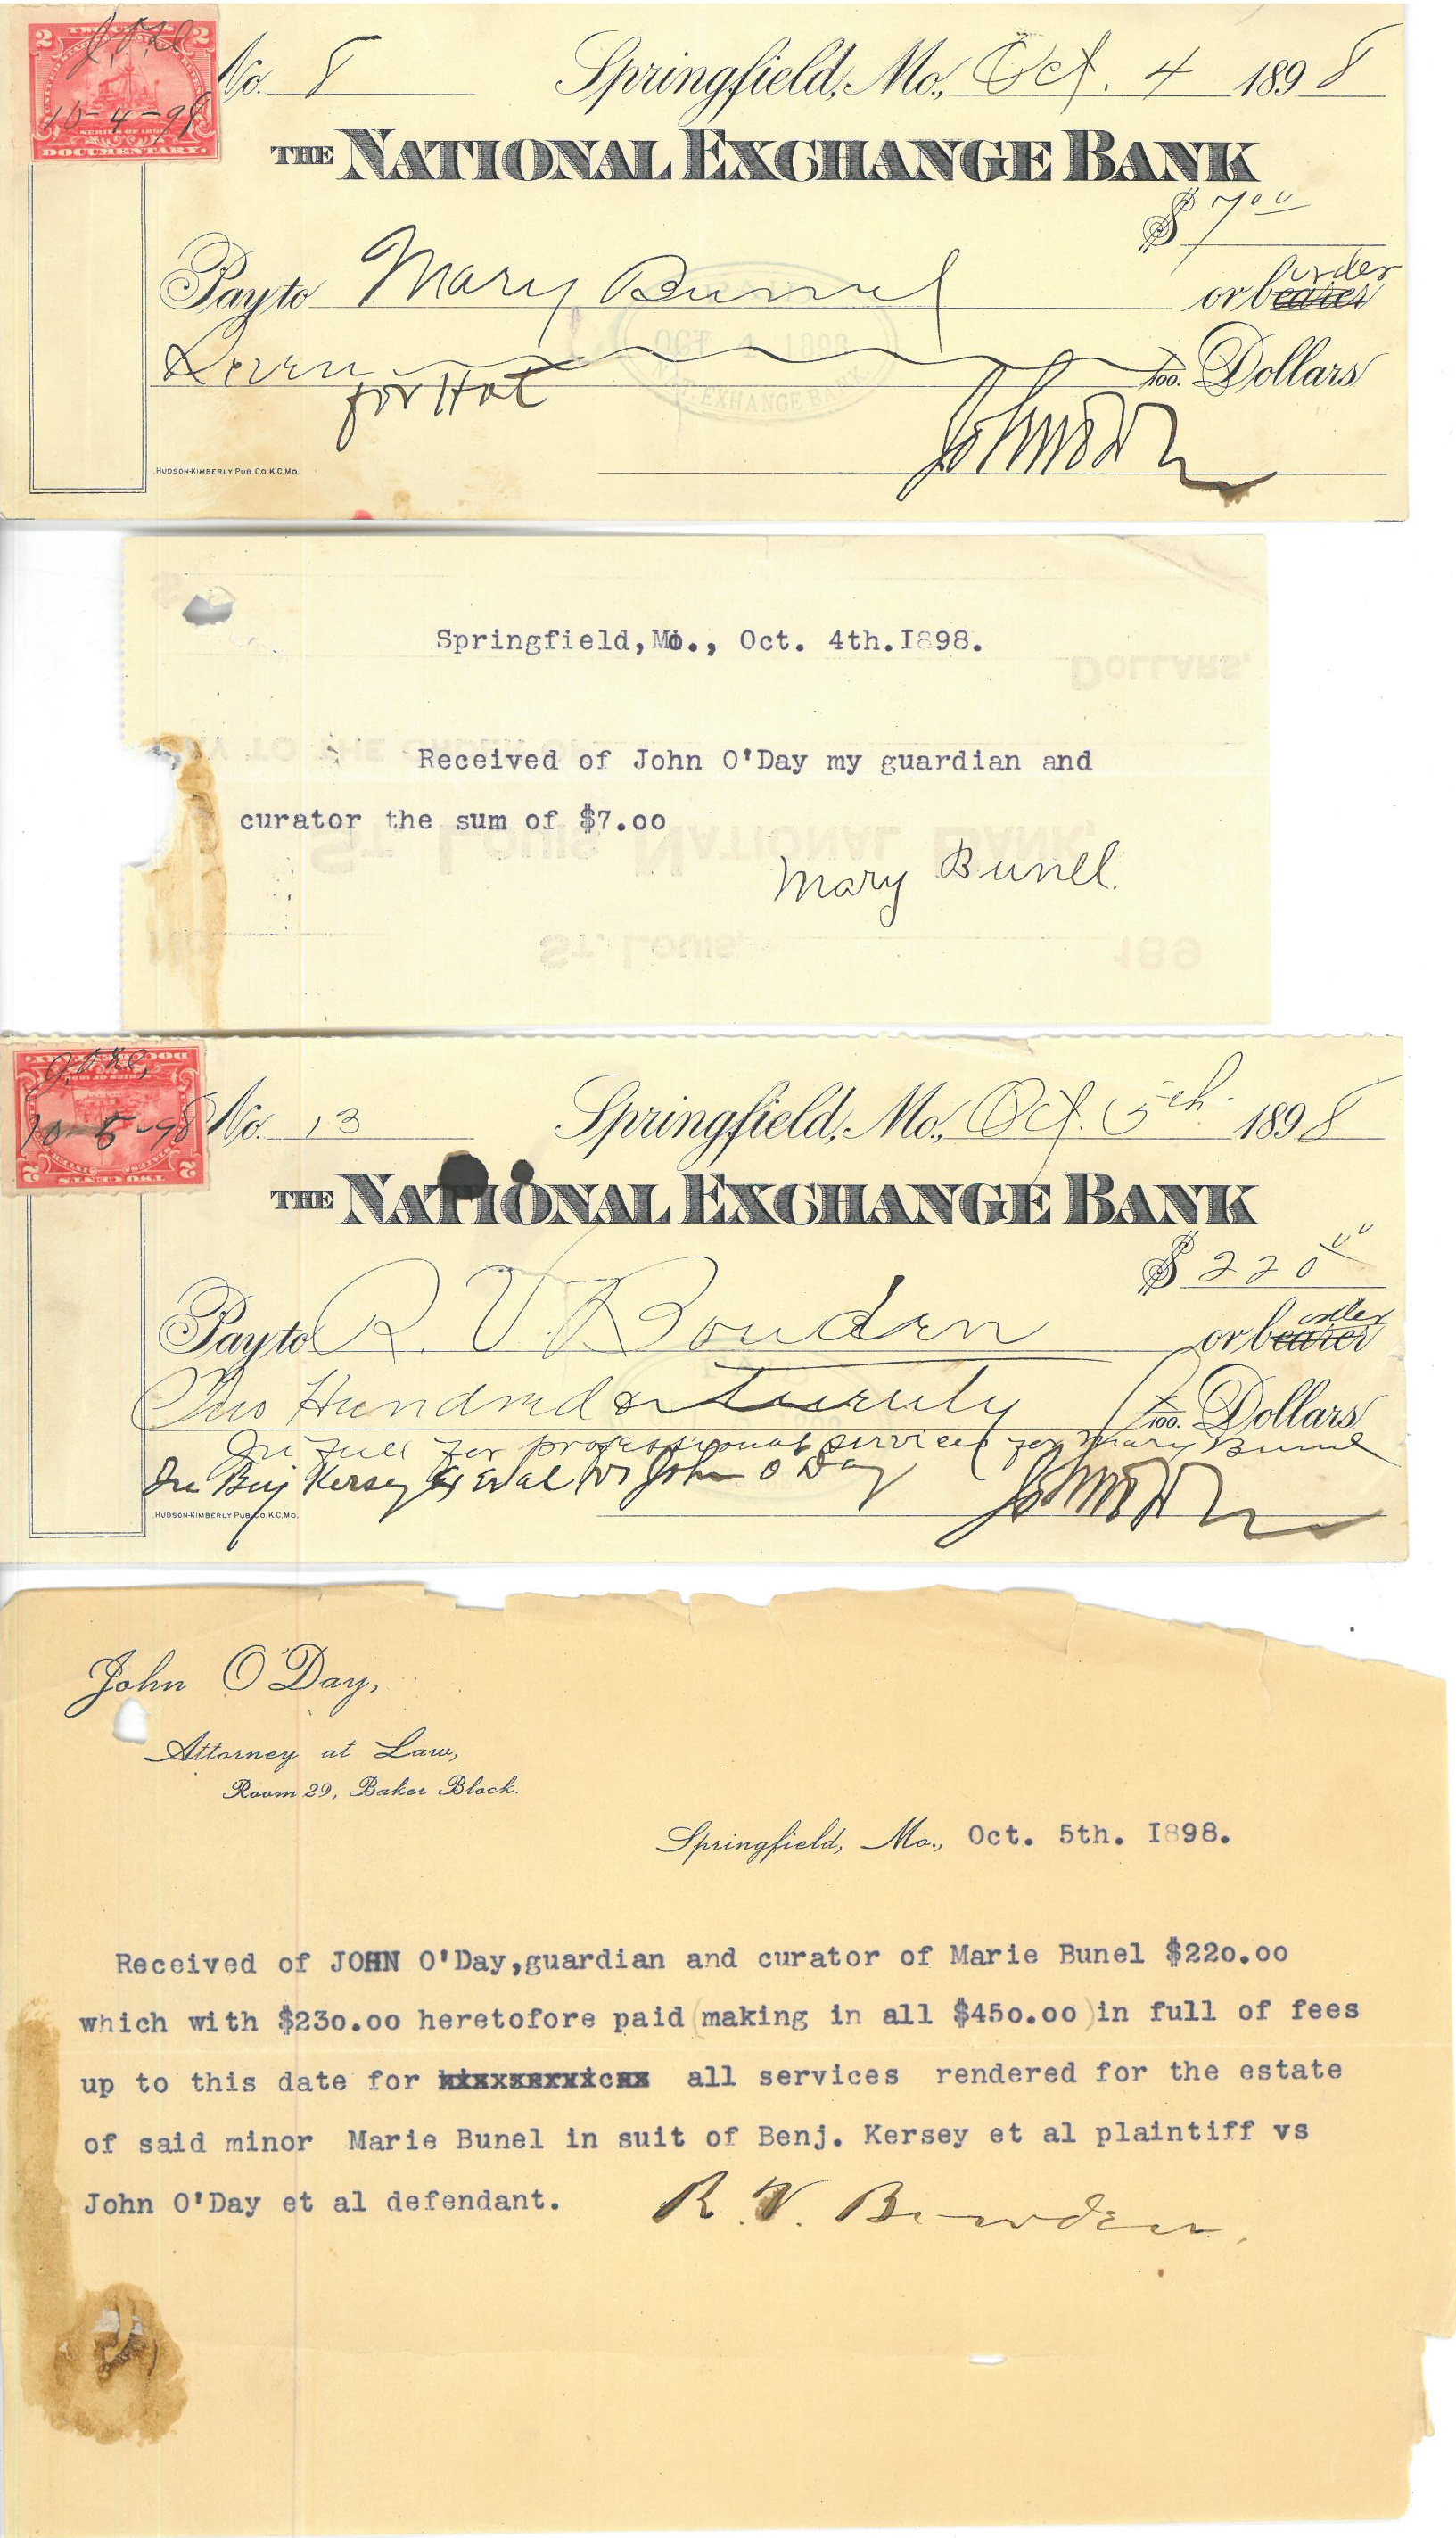 2 TWO CENTS 2
J.O'D
10-4-98
SERIES OF 1898
DOCUMENTARY.
No. 8 Springfield, Mo., Oct. 4 1898
THE NATIONAL EXCHANGE BANK
$ 7 00
order
Pay to Mary Bunnel or bearer
Seven 100. Dollars
for Hat
OCT 4 1898
NAT. EXHANGE BANK.
John O'Day
HUDSON-KIMBERLY PUB. CO. K.C. MO.
Springfield, Mo., Oct. 4th. I898.
DOLLARS,
Received of John O'Day my guardian and
PAY TO THE ORDER OF
curator the sum of $7.00
ST. LOUIS NATIONAL BANK,
Mary Bunell.
ST. LOUIS, 189
DOCUMENTARY.
10-5-98
2 TWO CENTS 2
No. 13 Springfield, Mo., Oct. 5th. 1898
THE NATIONAL EXCHANGE BANK
$ 220 00
order
Pay to R. V. Bouden or bearer
Two Hundred & Twenty 100. Dollars
In full for professional services for Mary Bunnel
In Benj Kersey et al vs John O'Day
John O'Day
HUDSON-KIMBERLY PUB. CO. K.C. MO.
John O'Day,
Attorney at Law,
Room 29, Baker Block.
Springfield, Mo., Oct. 5th. I898.
Received of JOHN O'Day,guardian and curator of Marie Bunel $220.00
which with $230.00 heretofore paid (making in all $450.00 )in full of fees
up to this date for all services rendered for the estate
of said minor Marie Bunel in suit of Benj. Kersey et al plaintiff vs
John O'Day et al defendant.
R. V. Bowden.